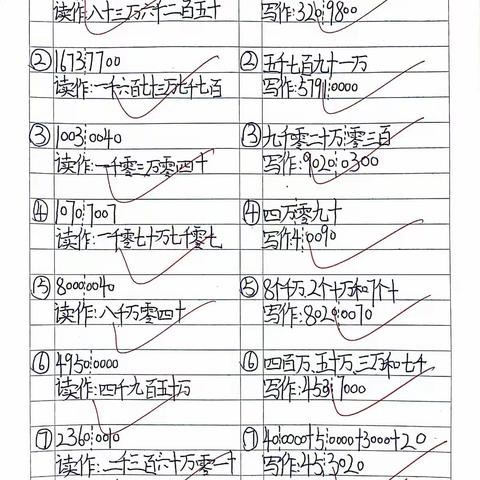 读作:八十三万六千二百五十
② 1673┊7700
读作:一千六百七十三万七千七百
③ 1003┊0040
读作:一千零三万零四十
④ 1070┊7007
读作:一千零七十万七千零七
⑤ 8000┊0040
读作:八千万零四十
⑥ 4950┊0000
读作:四千九百五十万
⑦ 2360┊0010
读作:二千三百六十万零一十
写作:320┊9800
② 五千七百九十一万
写作:5791┊0000
③ 九千零二十万┊零三百
写作:9020┊0300
④ 四万零九十
写作:4┊0090
⑤ 8个千万、2个十万和7个十
写作:8020┊0070
⑥ 四百万、五十万、三万和七千
写作:453┊7000
⑦ 40┊0000+5┊0000+3000+20
写作:45┊3020